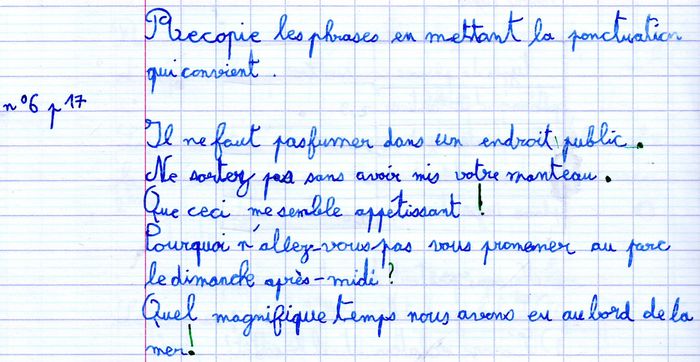 Recopie les phrases en mettant la ponctuation
qui convient.
n°6 p 17
Il ne faut pas fumer dans un endroit public.
Ne sortez pas sans avoir mis votre manteau.
Que ceci me semble appétissant !
Pourquoi n'allez-vous pas vous promener au parc
le dimanche après-midi ?
Quel magnifique temps nous avons eu au bord de la
mer!